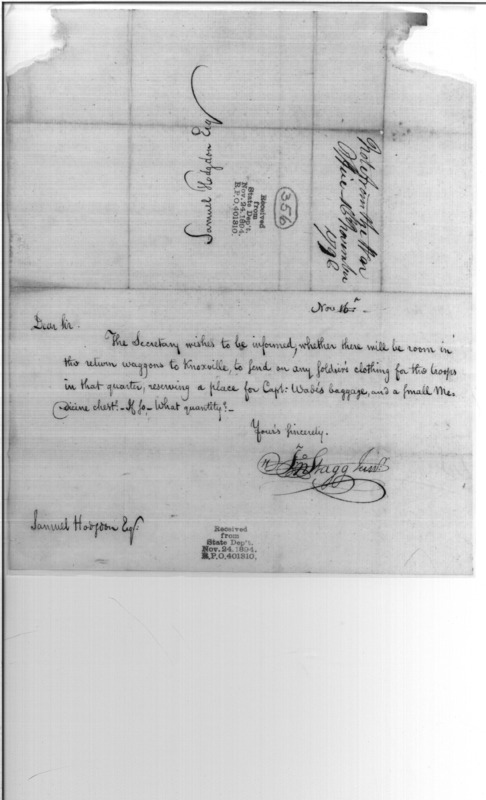 Samuel Hodgdon Esqr
356
Received
from
State Dep't.
Nov. 24. 1894.
R.P.O. 401810.
Note from the War
Office 16 November
Nov 16.
Dear Sir.
The Secretary wishes to be informed, whether there will be room in
the return waggons to Knoxville, to send on any soldier's clothing for the troops
in that quarter, reserving a place for Capt: Wade's baggage, and a small Me-
dicine chest.- If so - What quantity? -
Your's sincerely.
Jno Stagg Junr
Samuel Hodgdon Esqr.
Received
from
State Dep't.
Nov. 24. 1894.
R.P.O. 401810.